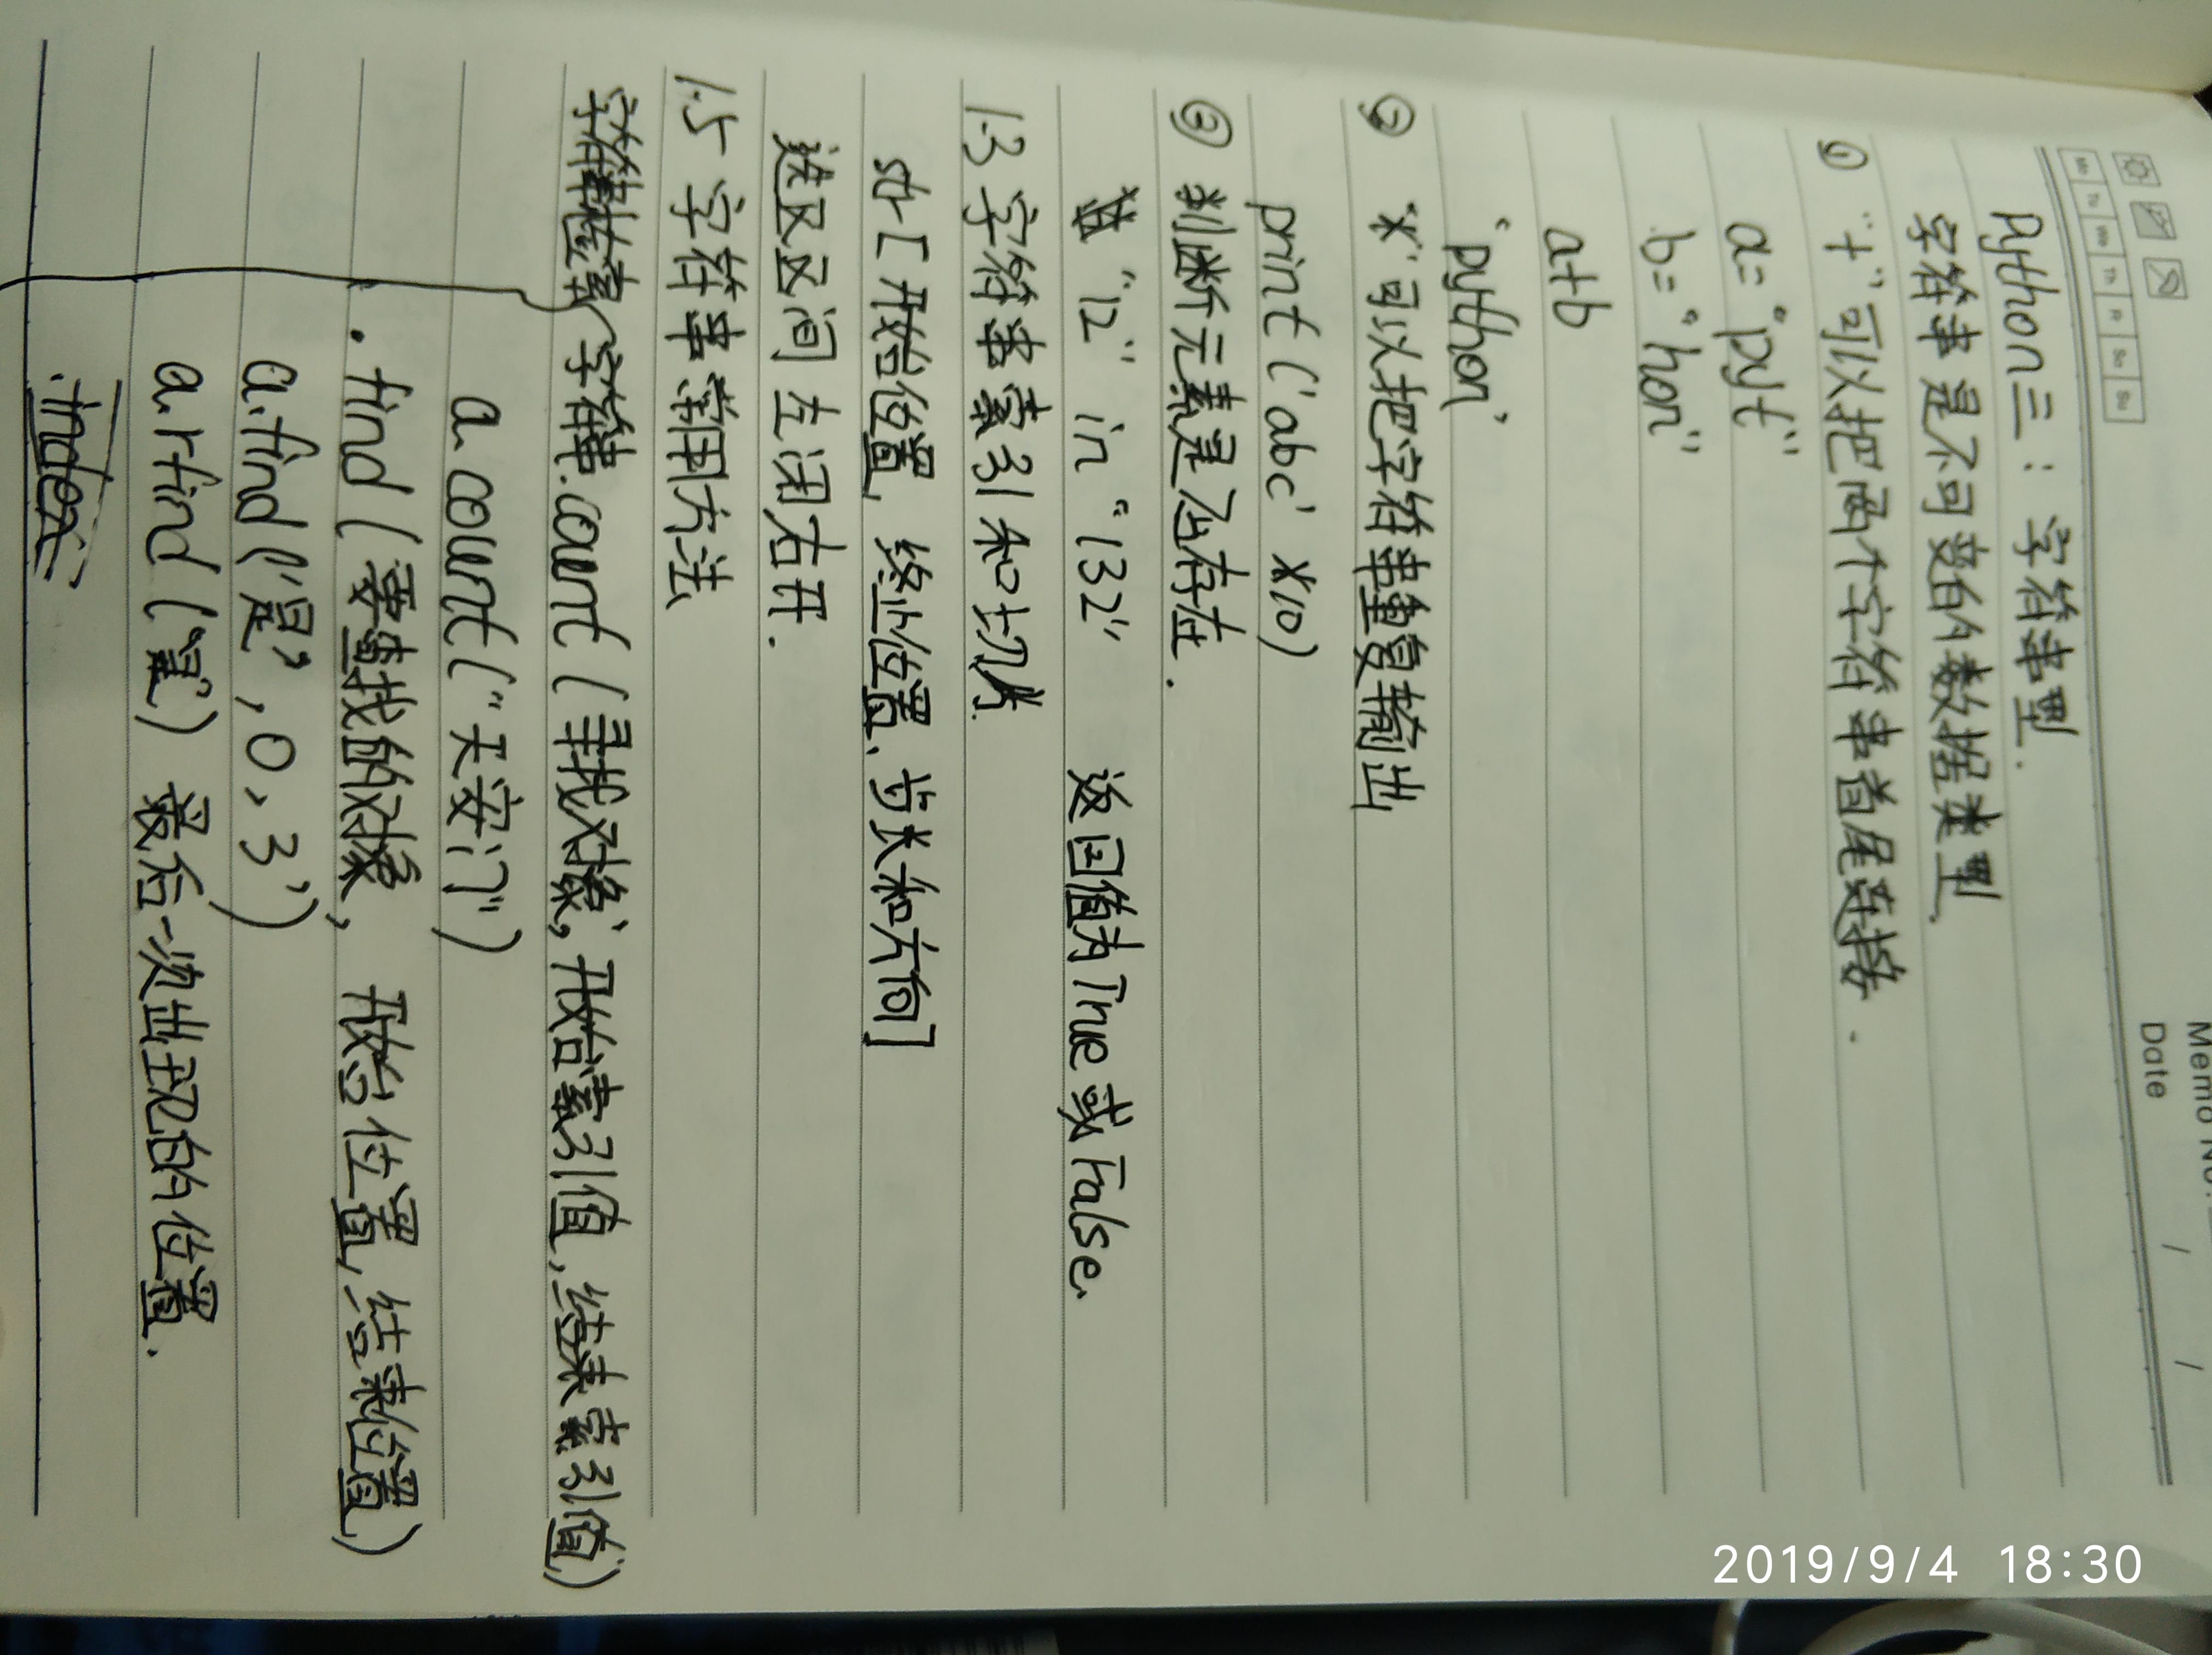 Memo No.
Date / /
Mo Tu We Th Fr Sa Su
Python三：字符串型.
字符串是不可变的数据类型.
① "+"可以把两个字符串首尾连接.
a="pyt"
b="hon"
a+b
'python'
② '*'可以把字符串重复输出
print('abc' *10)
③ 判断元素是否存在.
"12" in "132" 返回值为True或False.
1.3 字符串索引和切片.
str[开始位置, 终止位置、步长和方向]
选区区间 左闭右开.
1.5 字符串常用方法
字符串检索 字符串.count(寻找对象, 开始索引值, 结束索引值)
a.count("天安门")
.find(要查找的对象, 开始位置, 结束位置)
a.find("是", 0, 3)
a.rfind("是") 最后一次出现的位置.
.index
2019/9/4 18:30